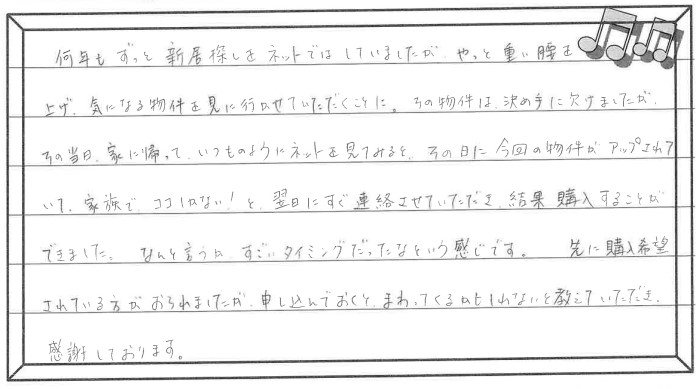 何年もずっと新居探しをネットではしていましたが、やっと重い腰を
上げ、気になる物件を見に行かせていただくことに。その物件は、決め手に欠けましたが、
その当日、家に帰って、いつものようにネットを見てみると、その日に今回の物件がアップされて
いて、家族で、ココしかない!と、翌日にすぐ連絡させていただき、結果購入することが
できました。なんと言うか、すごいタイミングだったなという感じです。 先に購入希望
されている方がおられましたが、申し込んでおくと、まわってくるかもしれないと教えていただき、
感謝しております。